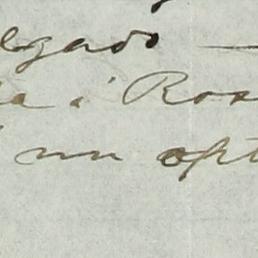 elgado —
a i Ros
un opt